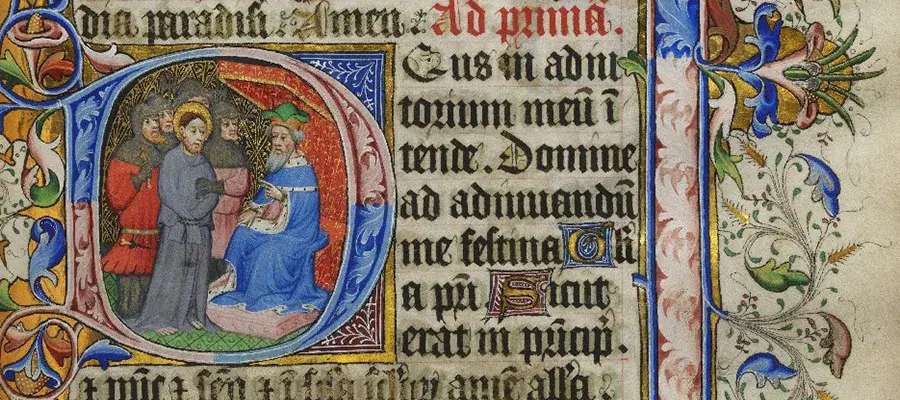 dia paradisi. Amen. Ad primā.
Deus in adiu
torium meū ī
tende. Domine
ad adiuuandū
me festina Glī
a p̄ri Sicut
erat in p̄ncip̄.
⁊ nūc ⁊ sēp ⁊ ī amē